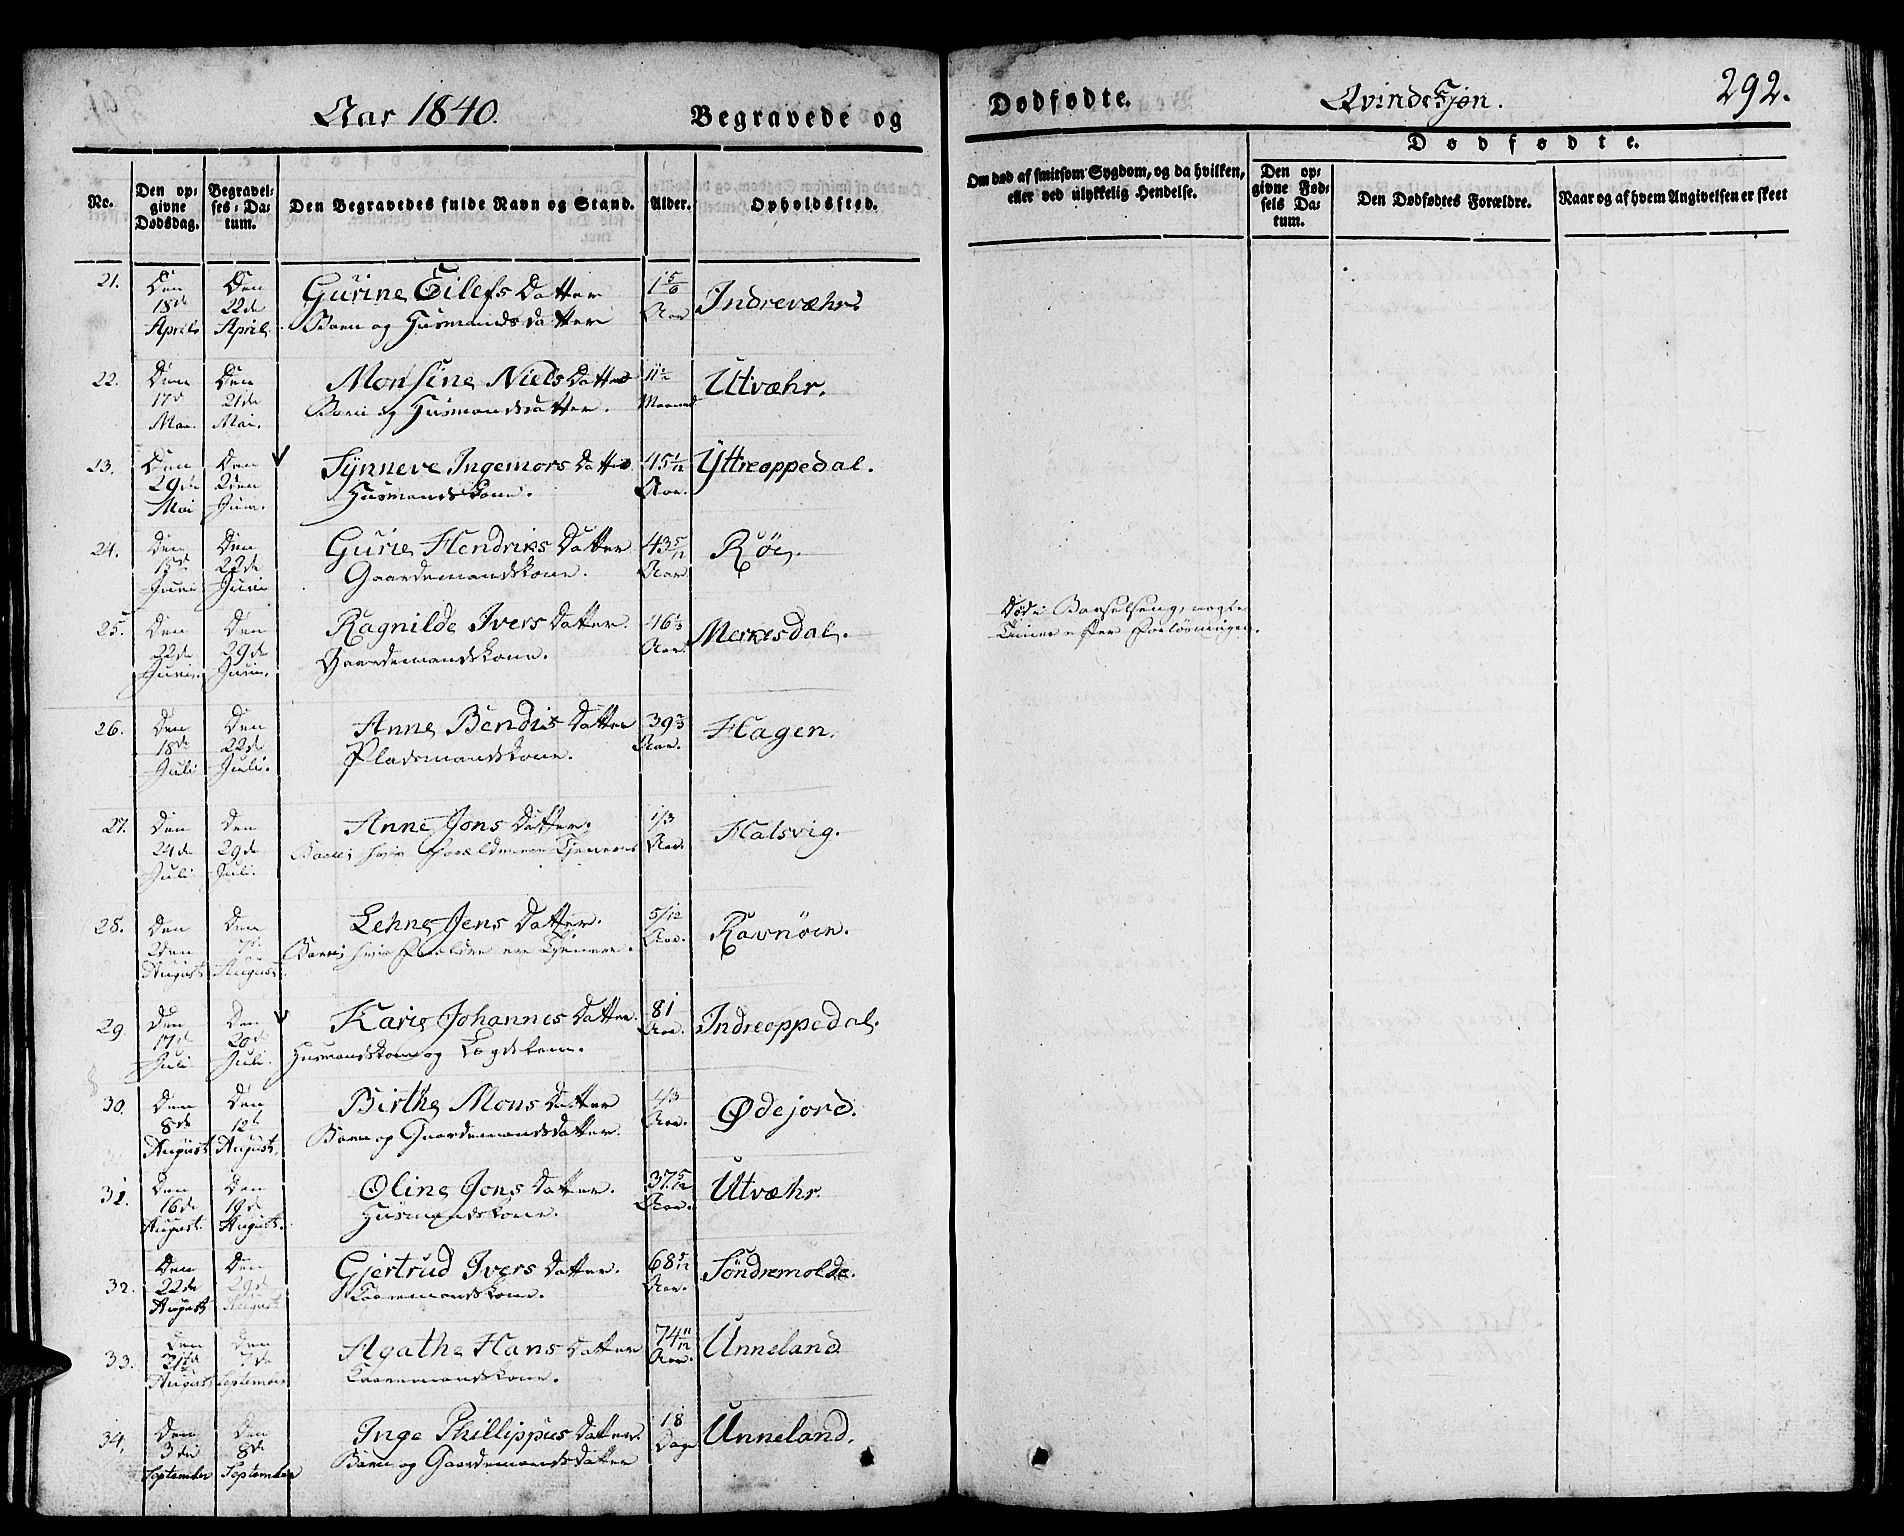 Aar 1840.
Begravede og
Dödfödte.
Qvindekjön.
292.
No.
Den opgivne Dødsdag.
Begravelses-Datum.
Den Begravedes fulde Navn og Stand.
Alder.
Opholdssted.
Om død af smitsom Sygdom, og da hvilken, eller ved ulykkelig Hendelse.
Dødfødte.
Den opgivne Fødsels Datum.
Den Dødfødtes Forældre.
Naar og af hvem Angivelsen er skeet
21. Den 18de April Den 22de April Gurine Eilefs Datter 1 5/6 Aar Indrevæhr
Barn og Husmandsdatter
22. Den 17de Mai. Den 21de Mai. Monsine Niels Datter 11½ Maaned Utvæhr.
Barn og Husmandsdatter.
23. Den 29de Mai Den 2den Juni. Synneve Ingemors Datter 45 1/12 Aar. Yttreoppedal.
Husmandskone.
24. Den 18de Juni Den 22de Juni Gurie Hendriks Datter 43 5/12 Aar. Røe.
Gaardemandskone.
25. Den 22de Juni. Den 29de Juni. Ragnilde Ivers Datter. 46⅓ Aar. Merkesdal.
Gaardemandskone.
Død i Barselseng, nogle
Timer efter Forløsningen.
26. Den 18de Juli Den 22de Juli. Anne Bendix Datter 39⅔ Aar. Hagen.
Pladsmandskone.
27. Den 24de Juli. Den 29de Juli. Anne Jons Datter. 1/3 Aar. Halsvig.
Barn, hvis Forældre ere Tjenere
28. Den 2den August Den August Lehne Jens Datter. 5/12 Aar. Ravnöen.
Barn, hvis Forældre ere Tjenere.
29. Den 17de Juli Den 20de Juli. Karie Johannes Datter. 81 Aar. Indreoppedal.
Husmandskone og Lægdslem.
30. Den 8de August Den 12te August. Birthe Mons Datter 4/3 Aar. Ødejord.
Barn og Gaardemandsdatter.
31. Den 16de August. Den 19de August. Oline Jons Datter. 37 5/12 Aar. Utvæhr.
Husmandskone.
32. Den 22de August Den 29de August Gjertrud Ivers Datter. 68 5/12 Aar. Söndremolde.
Kaaremandskone.
33. Den 31te August Den 7de September Agathe Hans Datter 74 11/12 Aar. Unneland
Kaaremandskone.
34. Den 3die September Den 8de September Inge Phillippus Datter. 18 Dage Unneland.
Barn og Gaardemandsdatter